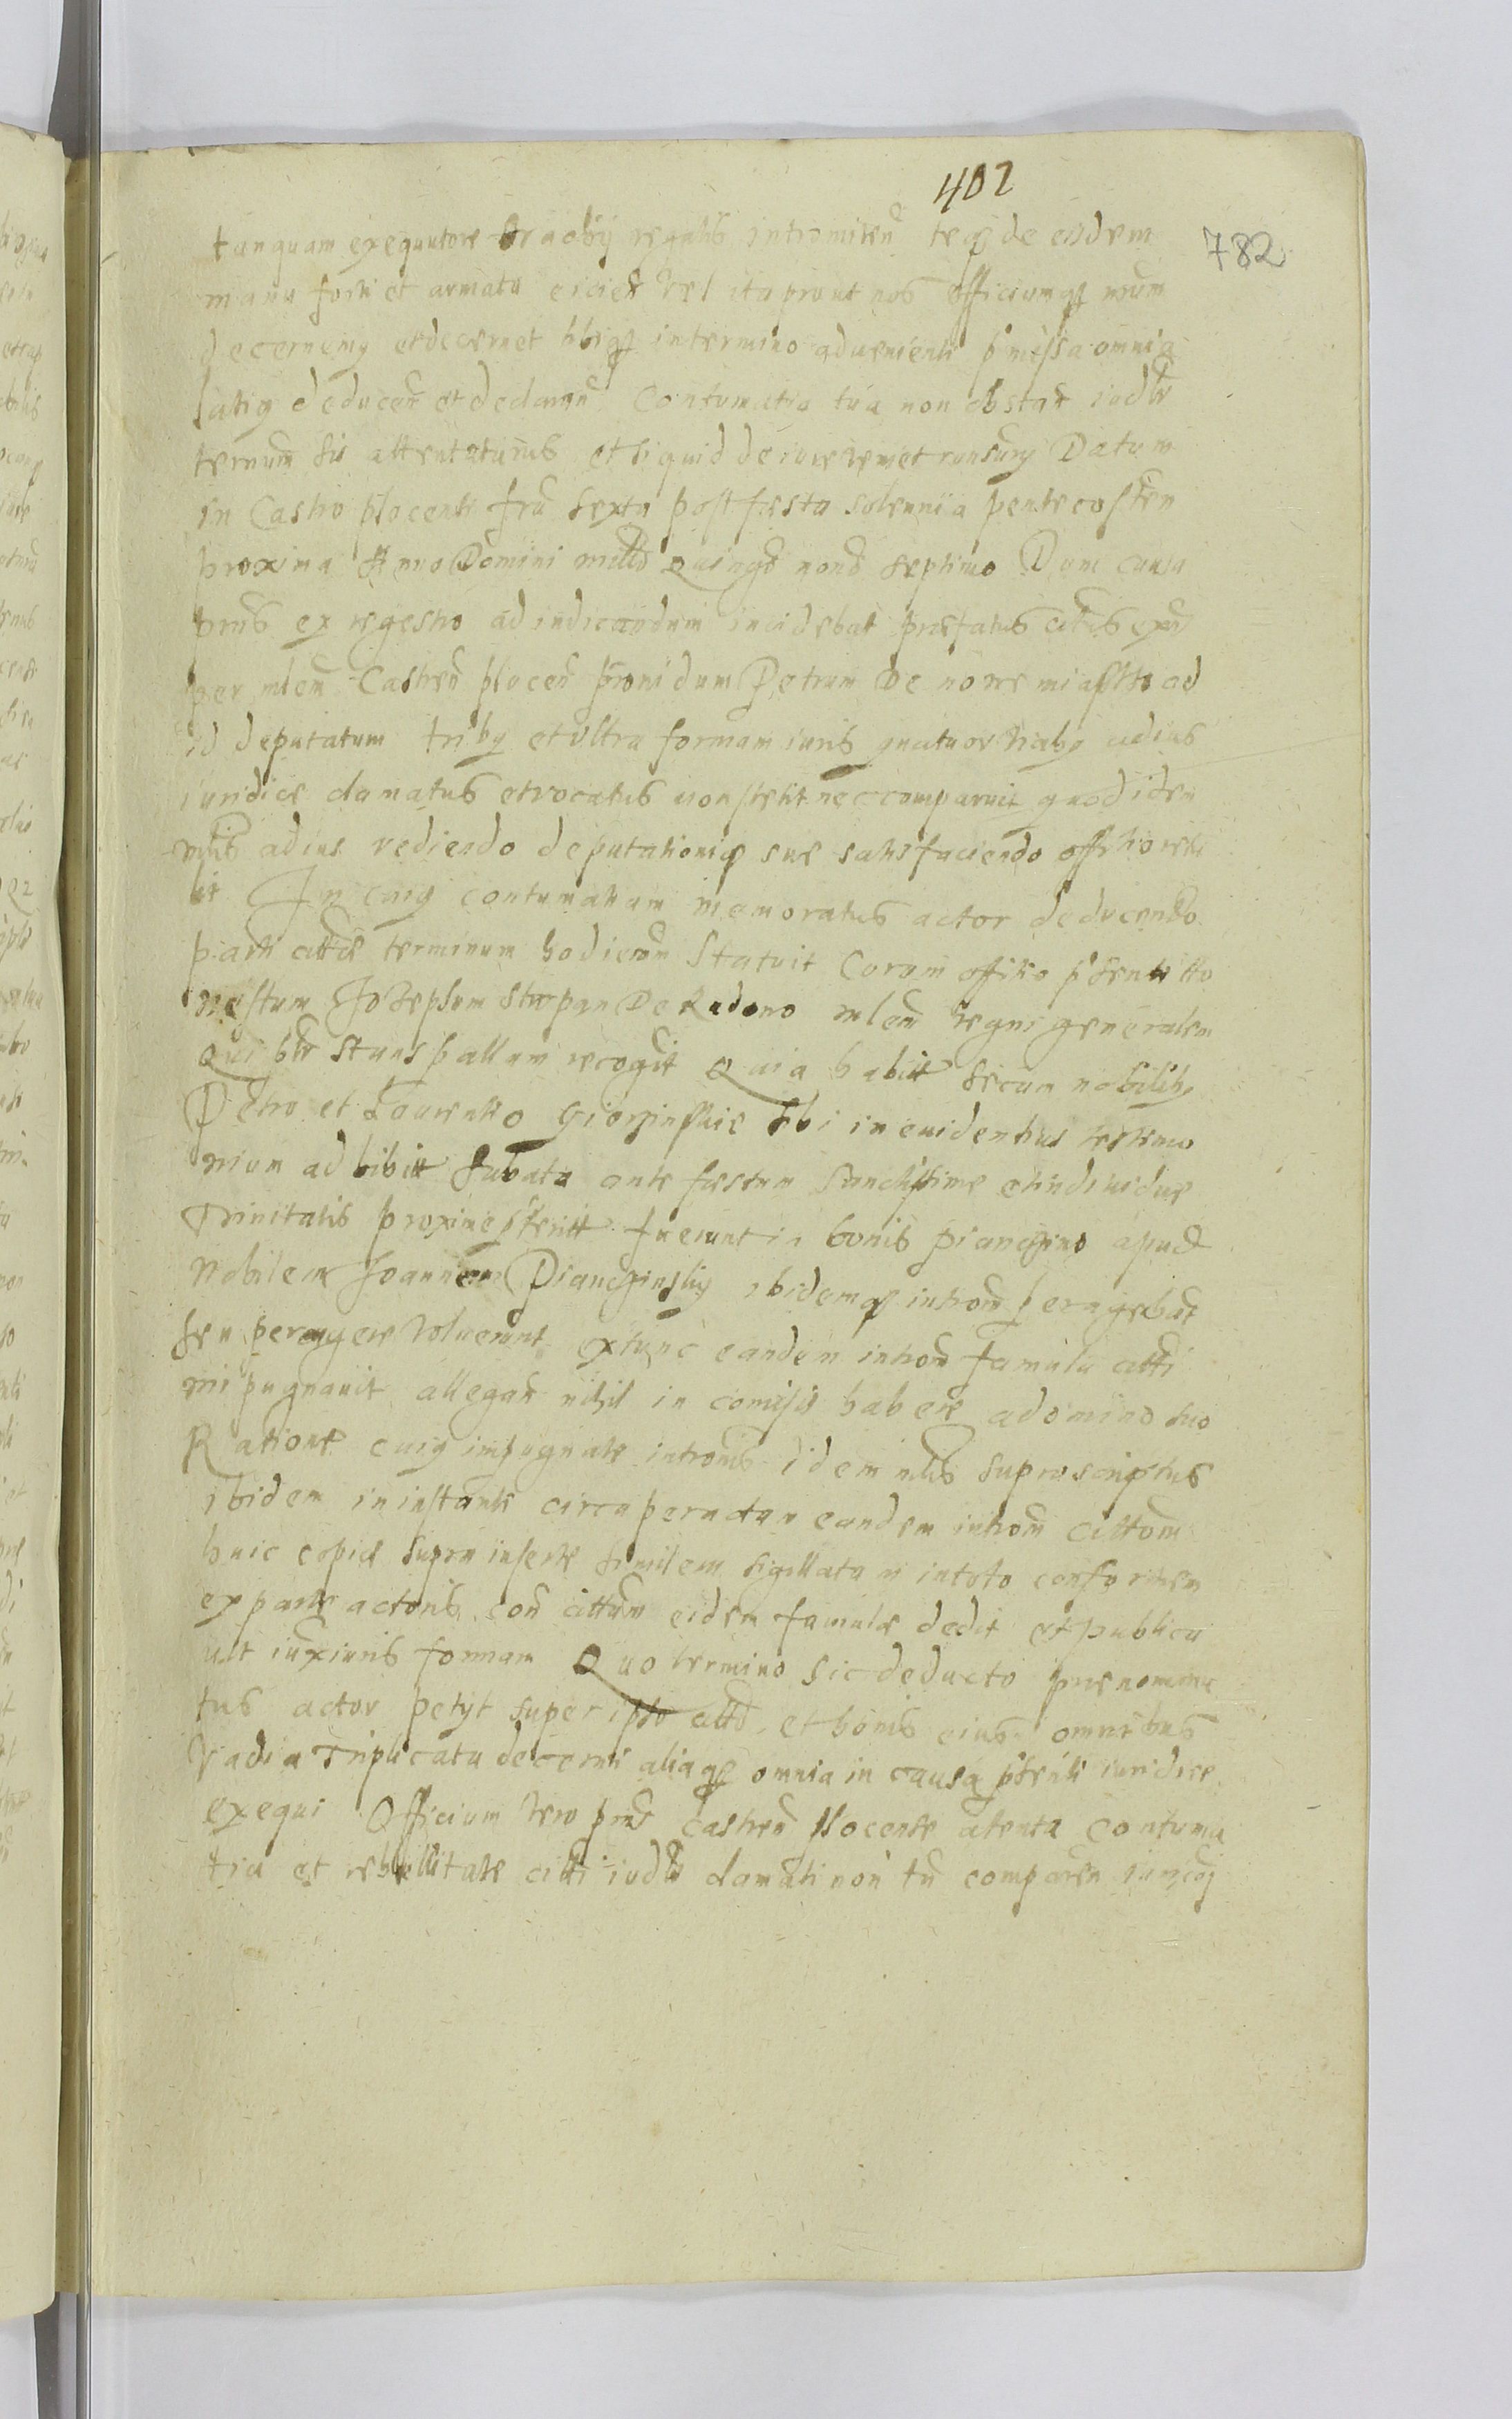 402
782
tanquam exequutore brachij regalis intromitten̄ teq́ de eisdem
manu forti et armata eicien̄ vel ita prout nos officiumq́ nr̄um
decernemq et decernet tibiq́ in termino advenienti p̄missa omnia
latiq deducen̄ et declaran̄ Contumatia tua non obstan̄ iudr̄
ternum sis attentaturus et siquid de iure venet ronsurq Datum
in Castro plocensi fr̄a sexta post festa solennia pentecosten
proxima Anno Domini mill̄o Quinḡo nono septimo Dum causa
pn̄s ex regestro ad iudicandum incidebat praefatus cit̄us
per ml̄em Castren̄ plocen̄ prouidum Petrum De nowe miastto ad
id deputatum tribq et vltra formam iuris quatuor vicibq ad ius
iuridice clamatus et vocatus non stetit nec comparuit quod idem
ml̄is ad ius rediendo deputationiq sue satisfaciendo offitio retu
lit In cuiq contumatiam memoratus actor deducendo
parti citt̄e terminum hodiern̄ Statuit Coram offitio p̄senti Ho
nestum Jozephum Stepan De Radono ml̄em regni generalem
Qui br̄ stans pallam recogn̄it Quia habuit secum nobilibq
Petro et Laurentio sibi in euidentius testimo
nium adhibitt Sabato ante festum Sanctissime et indiuidue
Trinitatis proxime p̄teritt fuerunt in bonis pianczino apud
Nobilem Joannem Pianczinskiq ibidemq́ introm̄ peragebat
seu peragere voluerunt extunc eandem introm̄ famula citt̄i
impugnauit allegan̄ nihil in comisis habere a domino suo
Ratione cuiq impugnate introm̄is idem ml̄is suprascriptus
ibidem in instanti circa peractam eandem introm̄ citt̄om
huic copiae supra inserte similem sigillatam in toto conformem
ex parte actoris con̄ citt̄um eidem famulae dedit et publica
uit iux̄ iuris formam Quo termino sic deducto prenomina
tus actor petijt super ipso citt̄o et bonis eius omnibus
Vadia Triplicata decerni aliaq́ omnia in causa p̄senti iuridice
exequi Officium vero pn̄s Castren̄ plocense atenta contuma
tia et rebellitate citt̄i iudr̄ clamati non tn̄ comparen̄